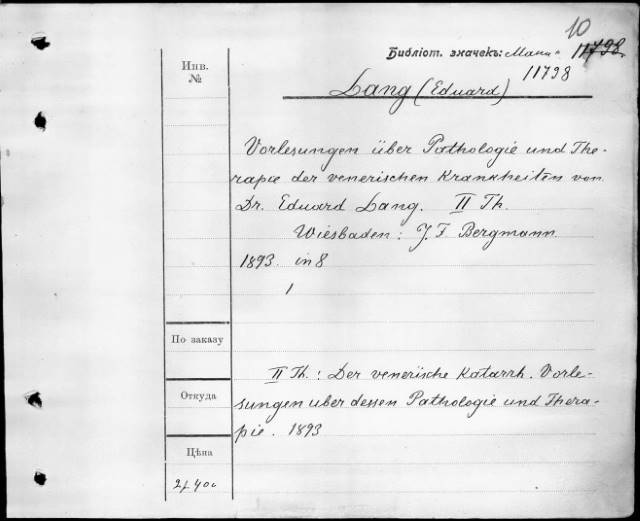 10
Библіот. значекъ: Мани 11798
11798
Инв.
№
Lang (Eduard)
Vorlesungen über Pathologie und The-
rapie der venerischen Krankheiten von
Dr. Eduard Lang. II Th.
Wiesbaden: J. F. Bergmann
1893. in 8
1
По заказу
II Th.: Der venerische Katarrh. Vorle-
Откуда
sungen uber dessen Pathologie und Thera-
pie. 1893
Цѣна